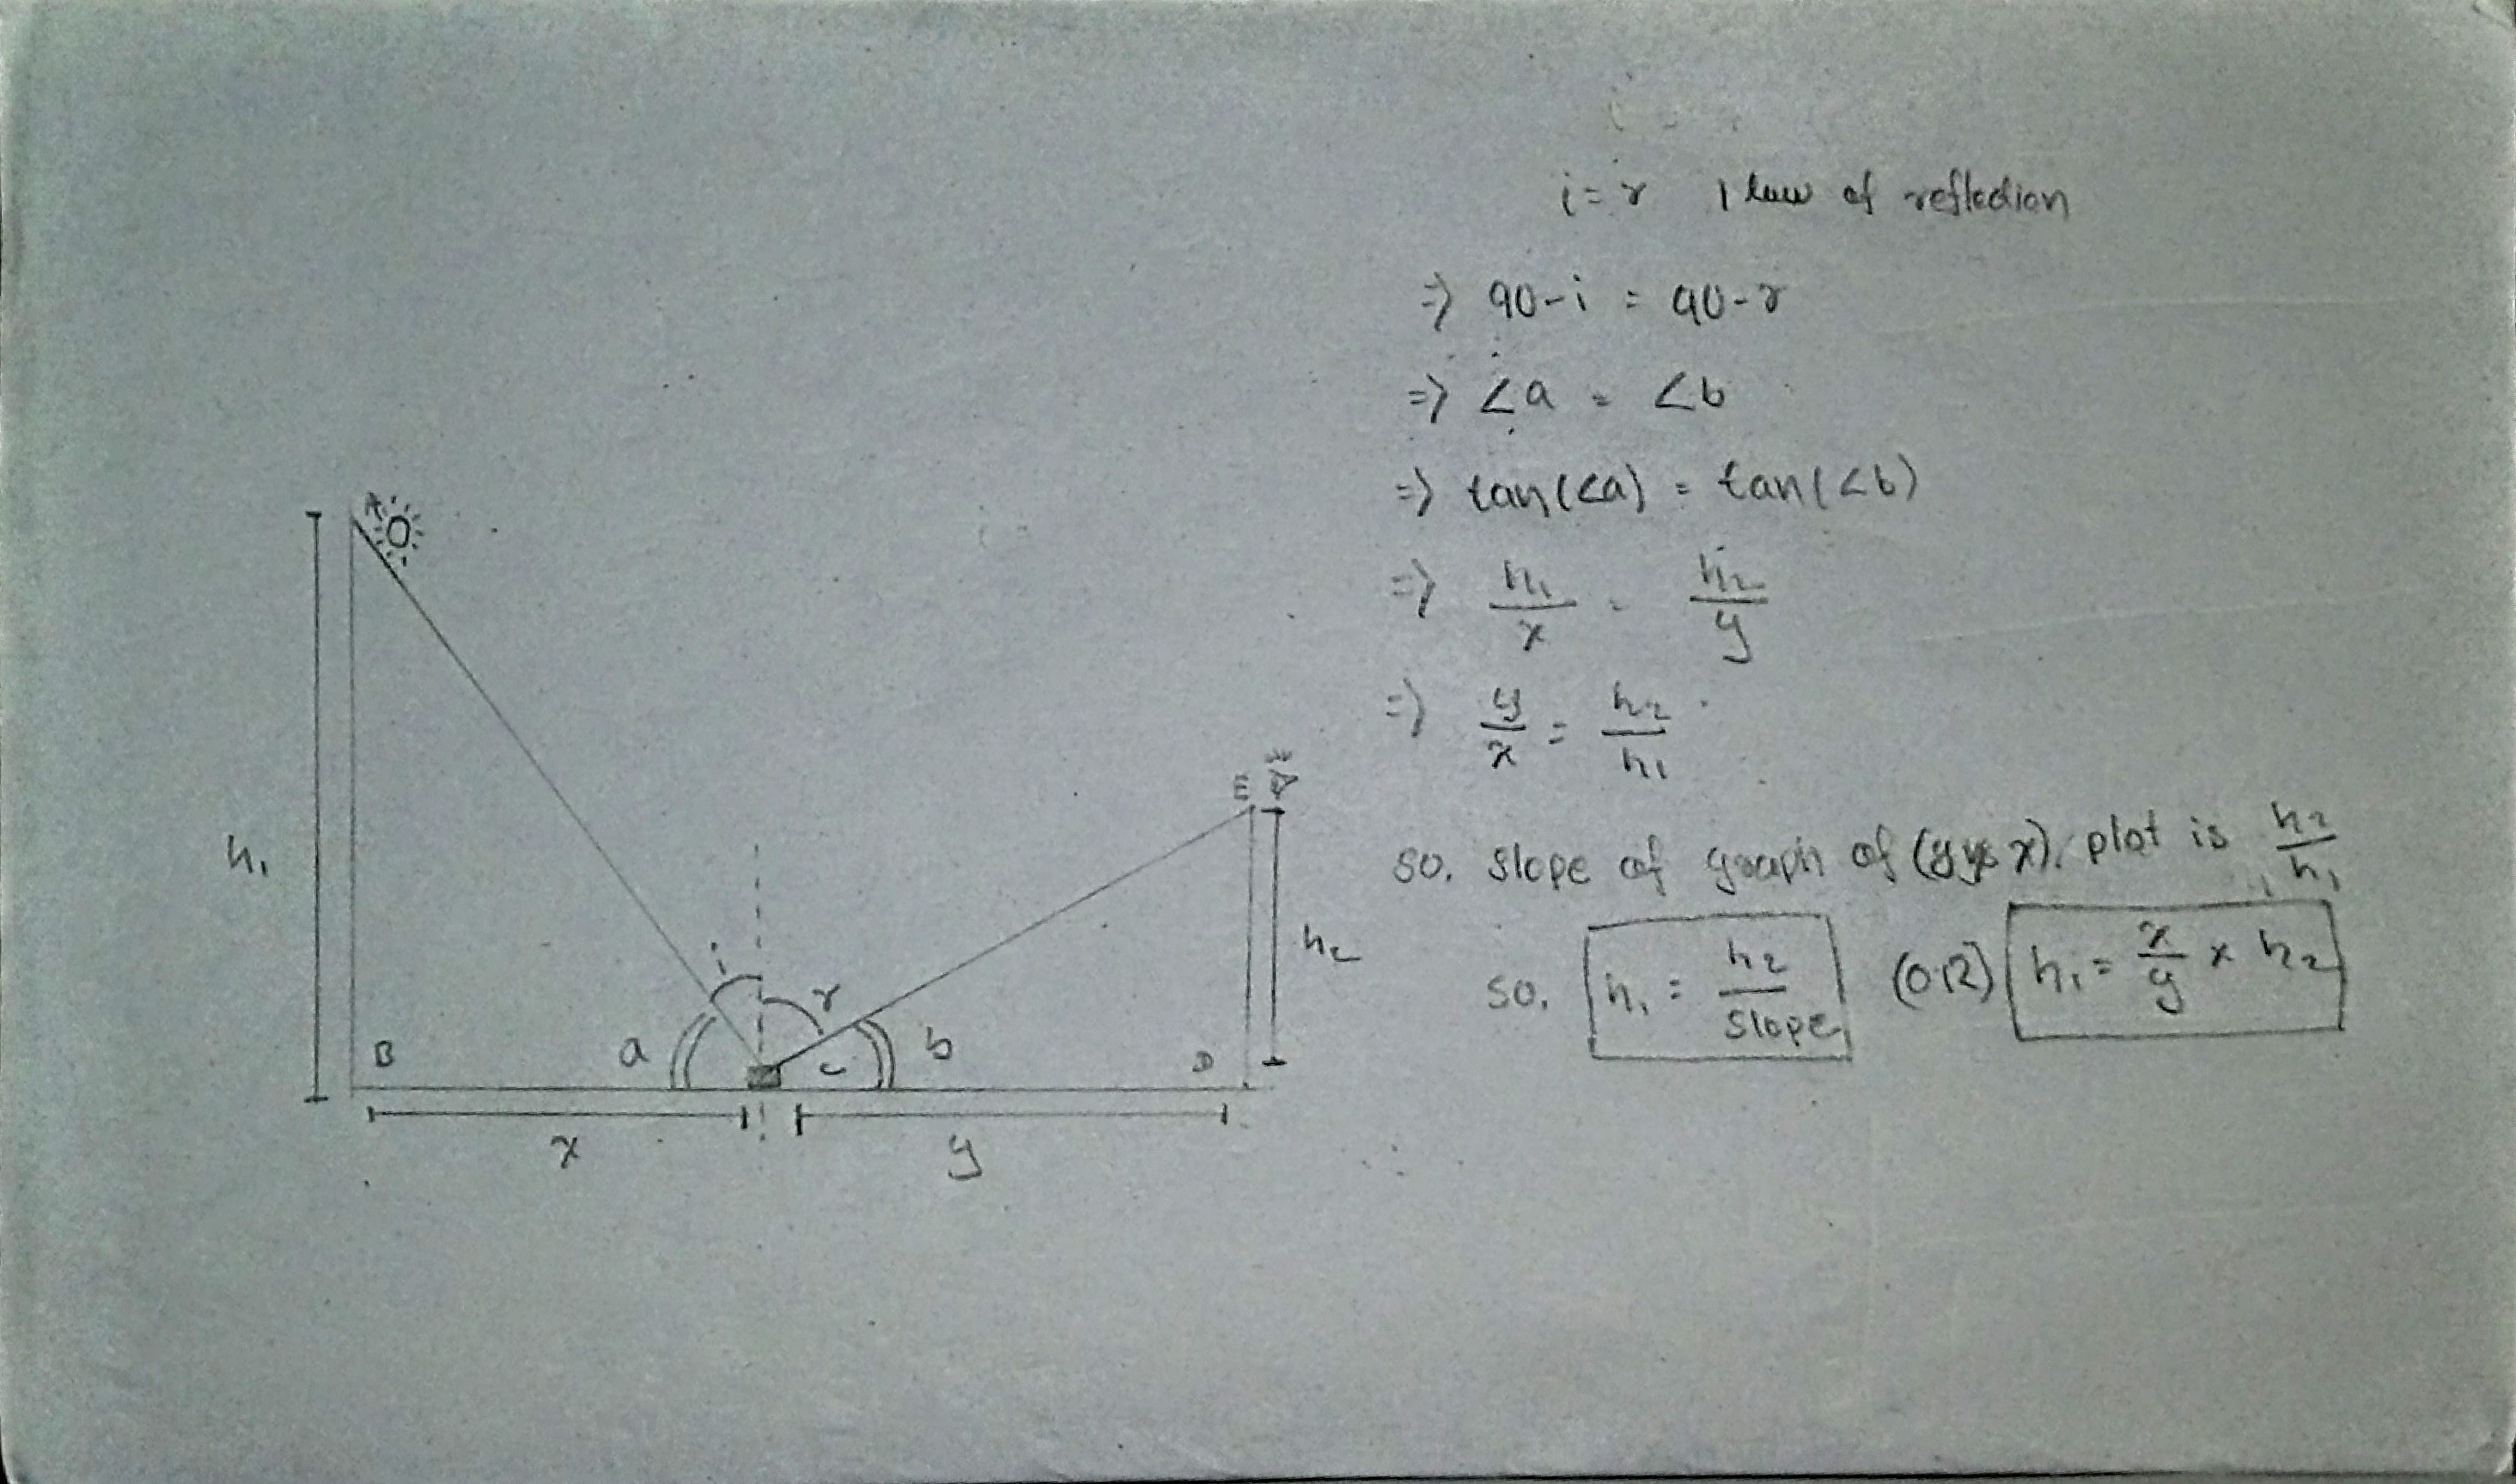 i = r | law of reflection
=> 90-i = 90-r
=> ∠a = ∠b
=> tan(∠a) = tan(∠b)
=> h₁/x = h₂/y
=> y/x = h₂/h₁
so, slope of graph of (y vs x) plot is h₂/h₁
so, h₁ = h₂/slope (OR) h₁ = x/y × h₂
A
E
h₁
h₂
i
r
B
a
c
b
D
x
y